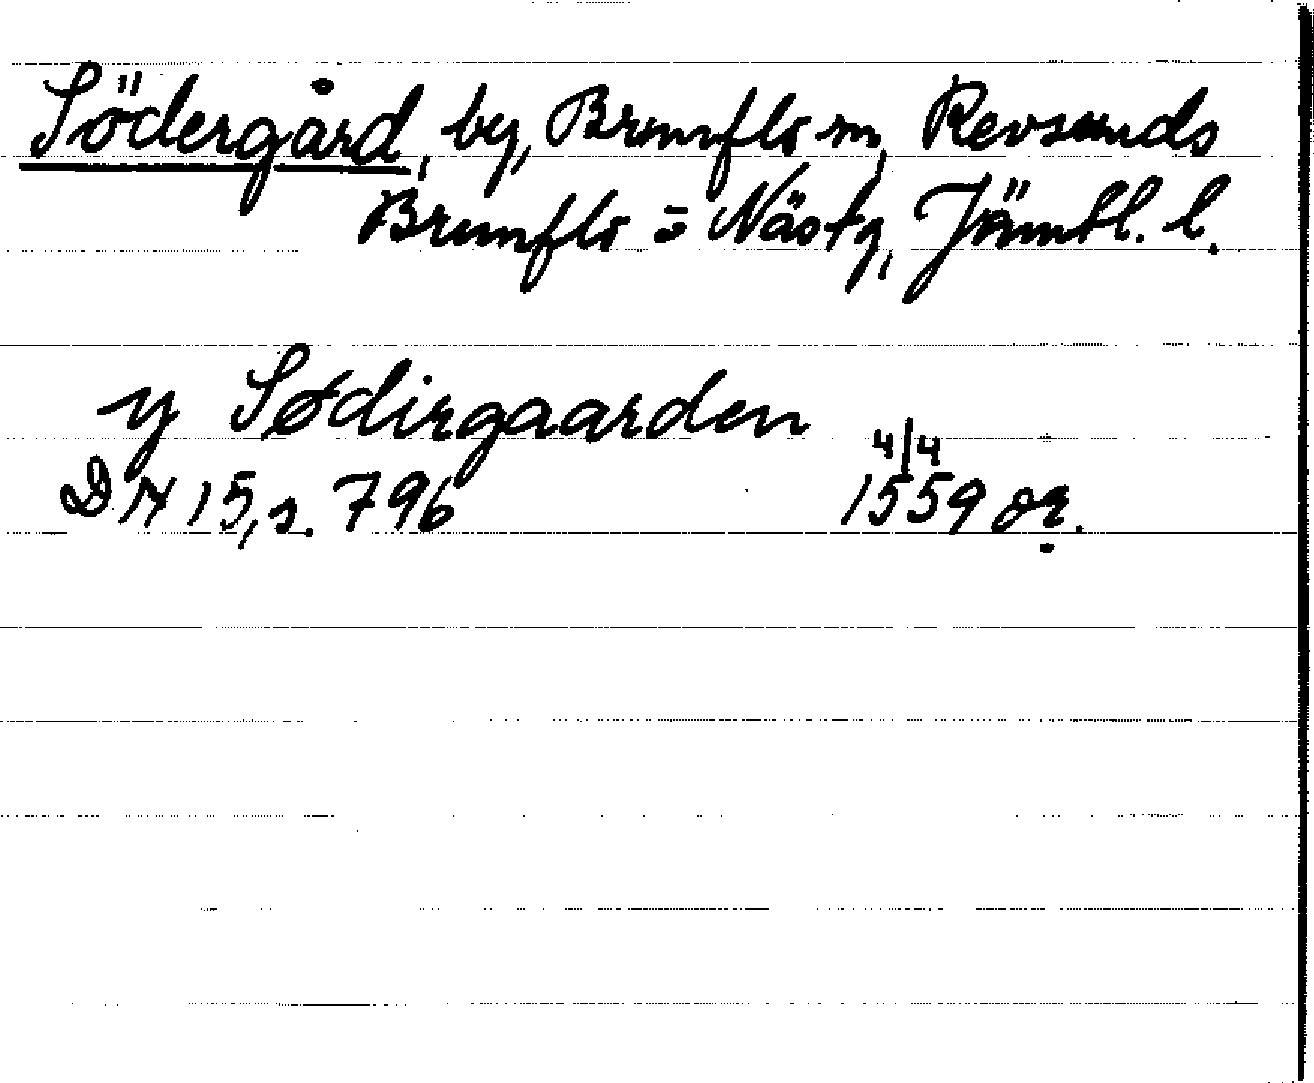 Södergård, by, Brunflo sn, Revsunds
Brunflo o Näs tg, Jämtl. l.
y Sødirgaarden
4/4
DN 15, s. 796 1559 or.